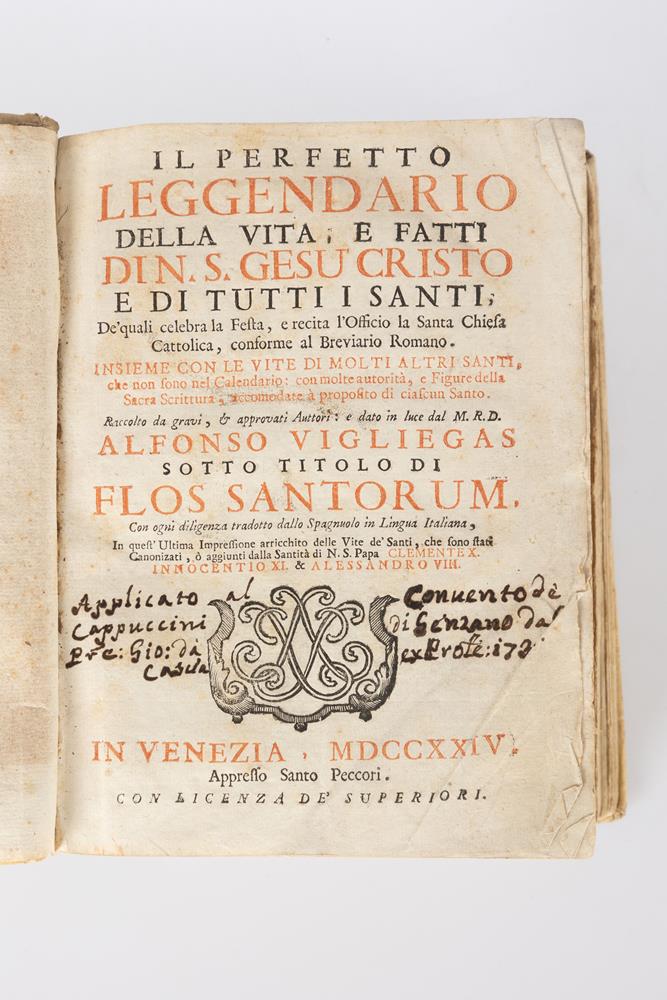 IL PERFETTO
LEGGENDARIO
DELLA VITA, E FATTI
DI N. S. GESU CRISTO
E DI TUTTI I SANTI,
De'quali celebra la Festa, e recita l'Officio la Santa Chiesa
Cattolica, conforme al Breviario Romano.
INSIEME CON LE VITE DI MOLTI ALTRI SANTI,
che non sono nel Calendario: con molte autorità, e Figure della
Sacra Scrittura, accomodate à proposito di ciascun Santo.
Raccolto da gravi, & approvati Auttori: e dato in luce dal M. R. D.
ALFONSO VIGLIEGAS
SOTTO TITOLO DI
FLOS SANTORUM,
Con ogni diligenza tradotto dallo Spagnuolo in Lingua Italiana,
In quest'Ultima Impressione arricchito delle Vite de'Santi, che sono stati
Canonizati, ò aggiunti dalla Santità di N. S. Papa CLEMENTE X.
INNOCENTIO XI. & ALESSANDRO VIII.
Applicato al Convento dè
Cappuccini di Genzano dal
Pre: Gio: da Cascia exProle: 173
IN VENEZIA, MDCCXXIV.
Appresso Santo Peccori.
CON LICENZA DE' SUPERIORI.